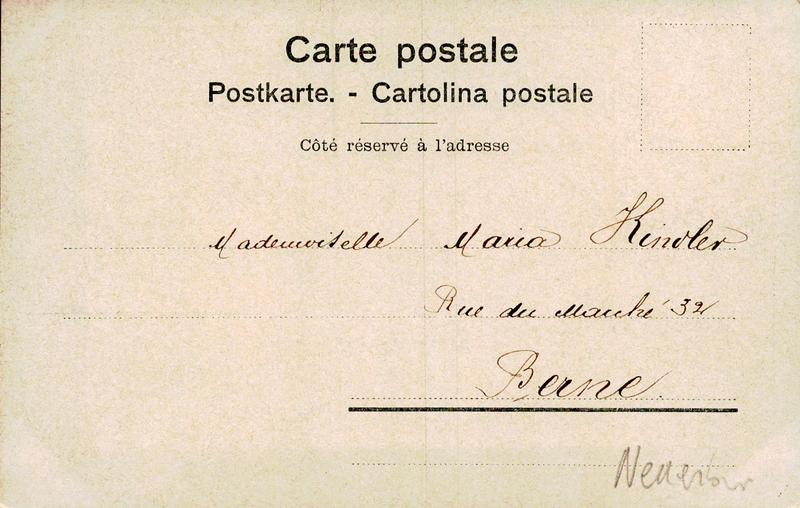 Carte postale
Postkarte. - Cartolina postale
Côté réservé à l'adresse
Mademoiselle Maria Kindler
Rue du Marché 32
Berne.